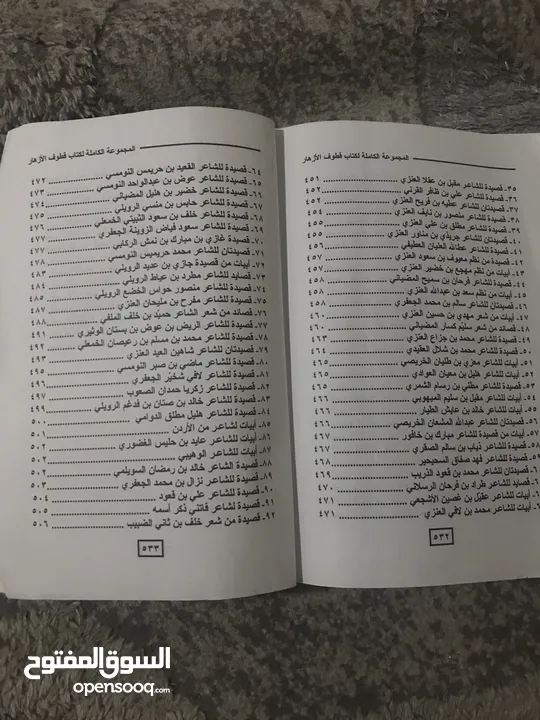 المجموعة الكاملة لكتاب قطوف الأزهار
٣٥- قصيدة للشاعر مقبل بن عقلا العنزي ٤٥١
٣٦- قصيدة للشاعر علي بن ظافر القرني ٤٥٢
٣٧- قصيدتان للشاعر عطيه بن فريح العنزي ٤٥٢
٣٨- قصيدة للشاعر منصور بن نايف العنزي ٤٥٤
٣٩- قصيدة للشاعر مطلق بن علي العنزي ٤٥٥
٤٠- قصيدتان للشاعر جريذي بن منور العنزي ٤٥٥
٤١- قصيدة للشاعر عطالله العليان العطيفي ٤٥٦
٤٢- قصيدة من نظم معيوف بن سعود العنزي ٤٥٧
٤٣- أبيات من نظم مهجع بن خضير العنزي ٤٥٧
٤٤- قصيدة للشاعر فرحان بن سميح المضياني ٤٥٨
٤٥- أبيات من نظم سعد بن عبدالله العنزي ٤٥٨
٤٦- قصيدتان للشاعر سالم بن محمد الجعفري ٤٥٨
٤٧- أبيات من شعر مهدي بن حسين العنزي ٤٦٠
٤٨- قصائد من شعر سليم كسار المضياني ٤٦٠
٤٩- قصيدة للشاعر محمد بن جزاع العنزي ٤٦٣
٥٠- قصيدة للشاعر محمد بن شلال العقيدي ٤٦٤
٥١- أبيات للشاعر معزي بن طليان الخريصي ٤٦٥
٥٢- أبيات للشاعر خليل بن معيان العوادي ٤٦٥
٥٣- قصيدة للشاعر مطلني بن رسام الشمري ٤٦٥
٥٤- أبيات للشاعر مقبل بن سليم الميهوبي ٤٦٦
٥٥- أبيات للشاعر خالد بن عايش الطيار ٤٦٦
قصيدتان للشاعر عبدالله المشعان الخريصي ٤٦٦
٥٧- أبيات من قصيدة للشاعر مبارك بن خافور ٤٦٧
قصيدة للشاعر ذياب بن سالم الصقري ٤٦٧
قصيدة للشاعر فهد صفاق السحيحير ٤٦٨
قصيدتان للشاعر محمد بن قعود الذريب ٤٦٩
قصايد للشاعر طراد بن فرحان الرسلاني ٤٧٠
أبيات للشاعر عقيل بن غصين الأشجعي ٤٧١
أبيات للشاعر محمد بن لافي العنزي ٤٧١
٥٣٢
المجموعة الكاملة لكتاب قطوف الأزهار
٦٤- قصيدة للشاعر القعيد بن حريمس النومسي ٤٧٢
٦٥- قصيدة للشاعر عوض بن عبدالواحد النومسي ٤٧٣
٦٦- قصيدة للشاعر خضير بن هليل المضياني ٤٧٤
٦٧- قصيدة للشاعر حابس بن منسي الرويلي ٤٧٥
٦٨- قصيدة للشاعر خلف بن سعود الثبيتي الخمعلي ٤٧٦
٦٩- قصيدة للشاعر سعود فياض الزوينة الجعفري ٤٧٧
٧٠- قصيدة غازي بن مبارك بن نمش الركابي ٤٧٧
٧١- قصيدتان للشاعر محمد حريميس النومسي ٤٧٨
٧٢- أبيات من قصيدة جازي بن عديد الرويلي ٤٨٣
٧٣- قصايد للشاعر مطرد بن عياط الرويلي ٤٨٤
٧٤- قصيدة للشاعر منصور حواس الخضع الرويلي ٤٨٥
٧٥- قصيدة للشاعر مفرح بن مليحان العنزي ٤٨٧
٧٦- قصائد من شعر الشاعر حميد بن خلف الملفي ٤٨٨
٧٧- قصيدة للشاعر الريض بن عوض بن بستان الوثيري ٤٩١
٧٨- قصيدة للشاعر محمد بن مسلم بن رعيصان الخمعلي ٤٩٢
٧٩- قصيدتان للشاعر شاهين العيد العنزي ٤٩٣
٨٠- قصيدة للشاعر ماضي بن صبر النومسي ٤٩٥
٨١- قصيدة للشاعر لافي شخير الجعفري ٤٩٦
٨٢- قصيدة للشاعر زكريا حمدان الصعوب ٤٩٧
٨٣- قصيدة للشاعر خالد بن صنتان بن فدغم الرويلي ٤٩٩
٨٤- قصيدة للشاعر هليل مطلق الدوامي ٥٠٠
٨٥- أبيات لشاعر من الأردن ٥٠١
٨٦- أبيات للشاعر عايد بن حليس الغضوري ٥٠٢
٨٧- أبيات للشاعر الوهيبي ٥٠٢
٨٨- قصيدة الشاعر خالد بن رمضان السويلمي ٥٠٢
٨٩- قصيدة للشاعر نزال بن محمد الجعفري ٥٠٣
٩٠- قصيدة للشاعر علي بن قعود ٥٠٤
٩١- قصيدة لشاعر فاتني ذكر أسمه ٥٠٥
٩٢- قصيدة من شعر خلف بن ثاني الضبيب ٥٠٦
٥٣٣
السوق المفتوح
opensooq.com